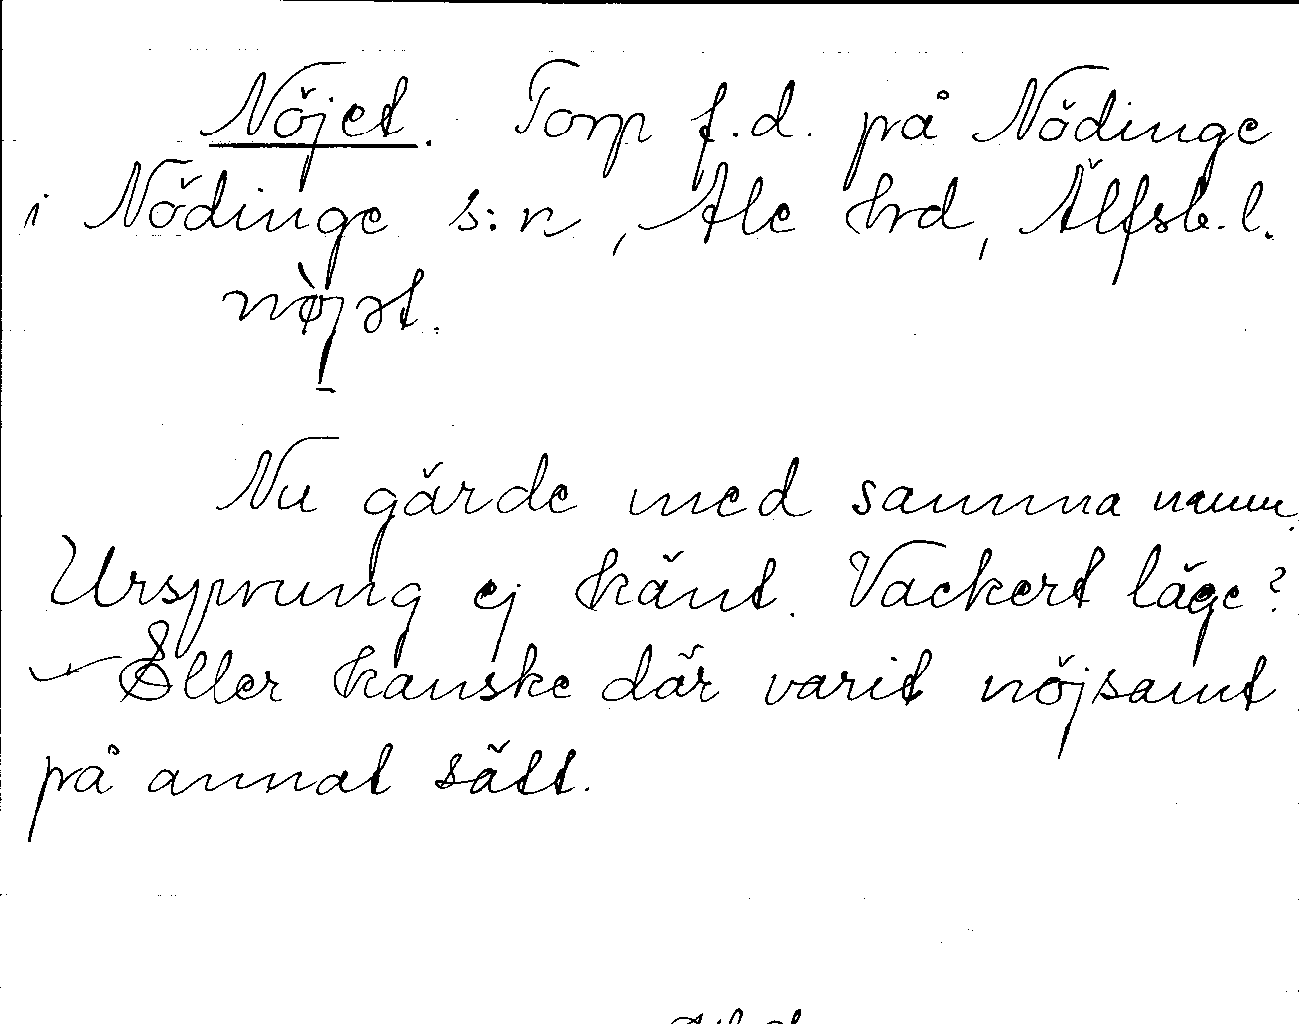 Nöjet. Torp f.d. på Nödinge
i Nödinge s:n, Ale hrd, Älfsb. l.
nø̀jət.
Nu gärde med samma namn.
Ursprung ej känt. Vackert läge?
Eller kanske där varit nöjsamt
på annat sätt.